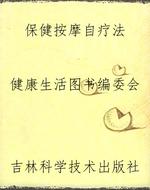 保健按摩自疗法
健康生活图书编委会
吉林科学技术出版社